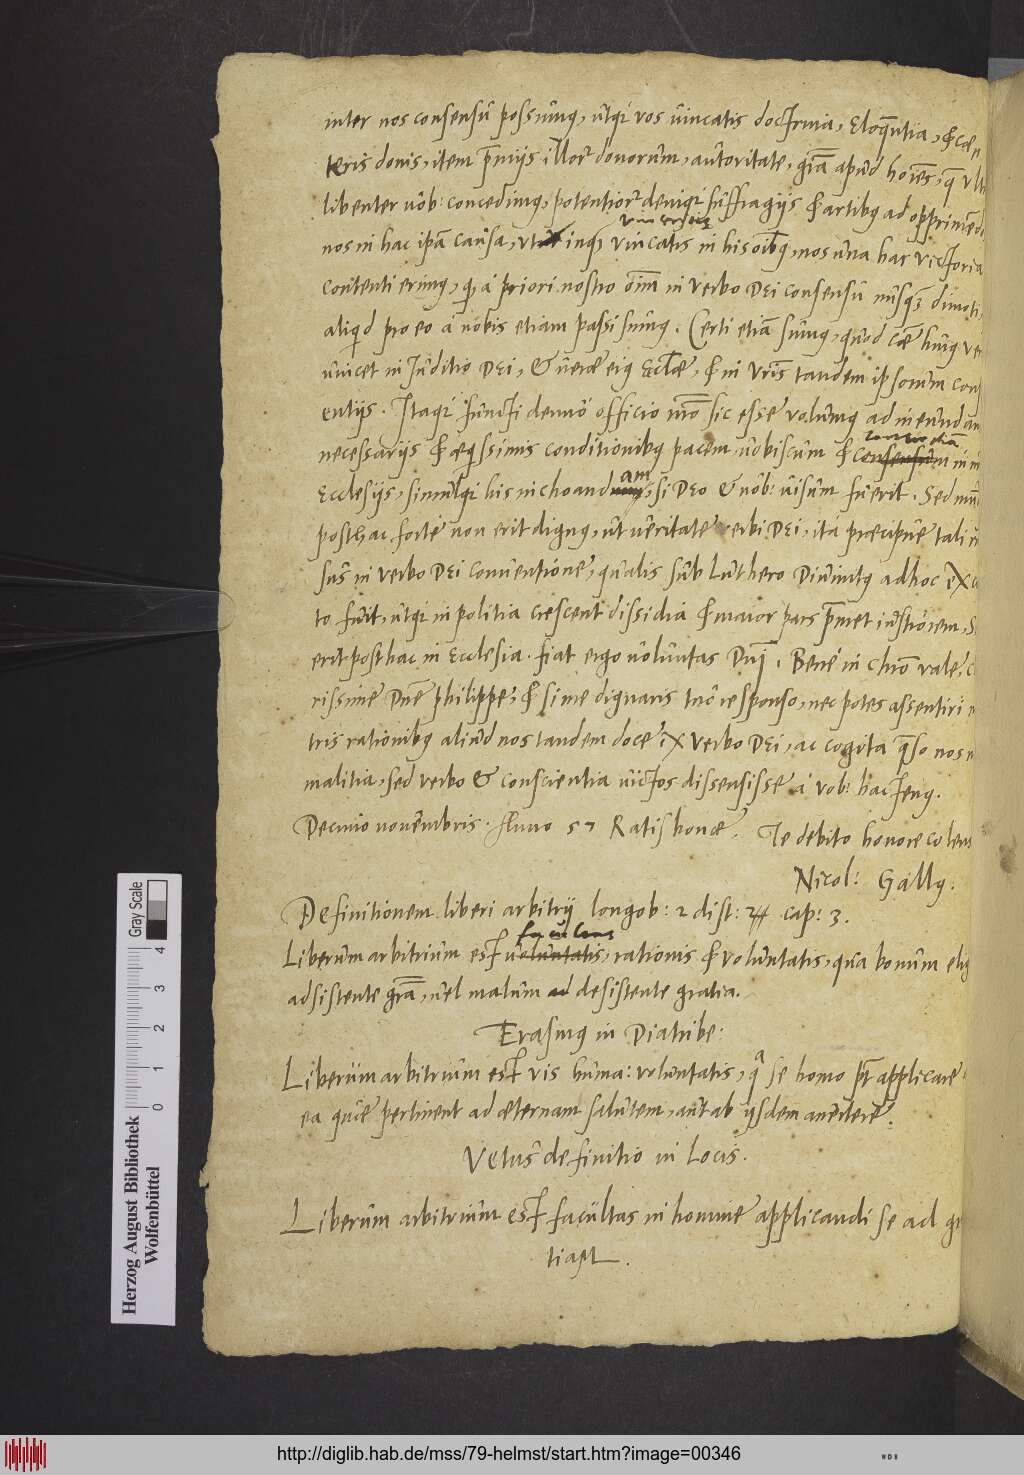 inter nos consensū possumꝯ, utqꝫ vos vincatis doctrina, Eloquētia, & cæ
teris donis, item p̄mijs illorꝫ donorum, autoritate, gr̄a apud hoīes, q̄ vl
libenter uob: concedimꝯ, potentiorꝫ deniqꝫ suffragijs & artibꝯ ad opprimēd
nos in hac ip̄a causa, inqꝫ vincatis in his oībꝯ, nos una hac victoria
contenti erimꝯ, qđ à priori nostro oīm in verbo Dei consensu nusqꝫ dimoti,
aliqd pro eo à nobis etiam passi sumꝯ. Certi etiā sumꝯ, quod cæ huiꝯ ve
uincet in Juditio Dei, & ueræ eiꝯ Ecclæ, & in vr̄is tandem ipsorum cons
entijs. Itaqꝫ functi denuò officio nr̄o sic esse volumꝯ ad ineund am
necessarijs & æqssimis conditionibꝯ pacem uobiscum & concordiā
Ecclesijs, simulqꝫ his inchoandam, si Deo & uob: uisum fuerit. Sed mū
posthac fortè non erit dignꝯ, ut ueritate verbi Dei, ita præcipue tali
sus in verbo Dei conuentione, qualis sub Luthero Diuinitꝯ ad hoc
to fuit, utqꝫ in politia crescent dissidia & maior pars p̄met iustiorem, S
erit posthac in Ecclesia. fiat ergo uoluntas Dn̄i. Benè in chr̄o vale, c
rissime Dn̄e Philippe, & si me dignaris tuo responso, nec potes assentiri n
tris rationibꝯ aliud nos tandem doce ex verbo Dei, ac cogita q̄so nos n
malitia, sed verbo & conscientia uictos dissensisse à vob: hactenꝯ.
Decimo nouembris. Anno 57 Ratisbonæ. Te debito honore colens
Nicol: Gallꝯ.
Definitionem liberi arbitrij longob: 2 dist: 24 cap: 3.
facultas
Liberum arbitrium est uoluntatis, rationis & voluntatis, qua bonum elig
adsistente gr̄a, uel malum ad desistente gratia.
Erasmꝯ in Diatribe:
Liberum arbitrium est vis huma: voluntatis, qa se homo p̄t applicare
ea quæ pertinent ad æternam salutem, aut ab ijsdem auertere.
Vetus definitio in Locis.
Liberum arbitrium est facultas in homine applicandi se ad gr
tiam.
Herzog August Bibliothek
Wolfenbüttel
0 1 2 3 4
Gray Scale
http://diglib.hab.de/mss/79-helmst/start.htm?image=00346